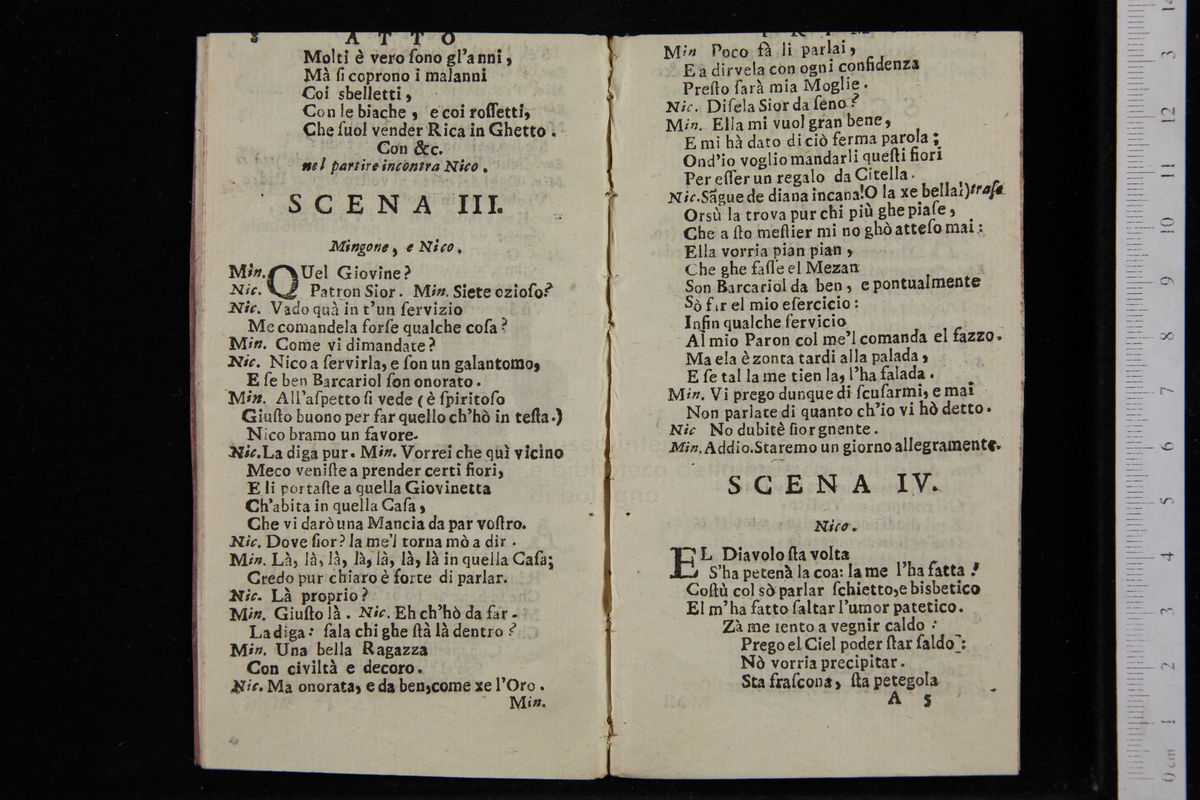 8 ATTO
Molti è vero ſono gl'anni,
Mà ſi coprono i malanni
Coi sbelletti,
Con le biache, e coi roſſetti,
Che ſuol vender Rica in Ghetto.
Con &c.
nel partire incontra Nico.
SCENA III.
Mingone, e Nico.
Min. QUel Giovine?
Nic. Patron Sior. Min. Siete ozioſo?
Nic. Vado quà in t'un ſervizio
Me comandela forſe qualche coſa?
Min. Come vi dimandate?
Nic. Nico a ſervirla, e ſon un galantomo,
E ſe ben Barcariol ſon onorato.
Min. All'aſpetto ſi vede (è ſpiritoſo
Giuſto buono per far quello ch'hò in teſta.)
Nico bramo un favore.
Nic. La diga pur. Min. Vorrei che quì vicino
Meco veniſte a prender certi fiori,
E li portaſte a quella Giovinetta
Ch'abita in quella Caſa,
Che vi darò una Mancia da par voſtro.
Nic. Dove ſior? la me'l torna mò a dir.
Min. Là, là, là, là, là, là, là in quella Caſa;
Credo pur chiaro è forte di parlar.
Nic. Là proprio?
Min. Giuſto là. Nic. Eh ch'hò da far.
La diga: ſala chi ghe ſtà là dentro?
Min. Una bella Ragazza
Con civiltà e decoro.
Nic. Ma onorata, e da ben, come xe l'Oro.
Min.
PRIMO
Min Poco fà li parlai,
E a dirvela con ogni confidenza
Preſto ſarà mia Moglie.
Nic. Diſela Sior da ſeno?
Min. Ella mi vuol gran bene,
E mi hà dato di ciò ferma parola;
Ond'io voglio mandarli queſti fiori
Per eſſer un regalo da Citella.
Nic. Sãgue de diana incana!O la xe bella!)traſe
Orsù la trova pur chi più ghe piaſe,
Che a ſto meſtier mi no ghò atteſo mai:
Ella vorria pian pian,
Che ghe faſſe el Mezan
Son Barcariol da ben, e pontualmente
Sò far el mio eſercicio:
Infin qualche ſervicio
Al mio Paron col me'l comanda el fazzo.
Ma ela è zonta tardi alla palada,
E ſe tal la me tien la, l'ha falada.
Min. Vi prego dunque di ſcuſarmi, e mai
Non parlate di quanto ch'io vi hò detto.
Nic No dubitè ſior gnente.
Min. Addio. Staremo un giorno allegramente.
SCENA IV.
Nico.
EL Diavolo ſta volta
S'ha petenà la coa: la me l'ha fatta!
Coſtù col sò parlar ſchietto, e bisbetico
El m'ha fatto ſaltar l'umor patetico.
Zà me ſento a vegnir caldo:
Prego el Ciel poder ſtar ſaldo:
Nò vorria precipitar.
Sta fraſcona, ſta petegola
A 5